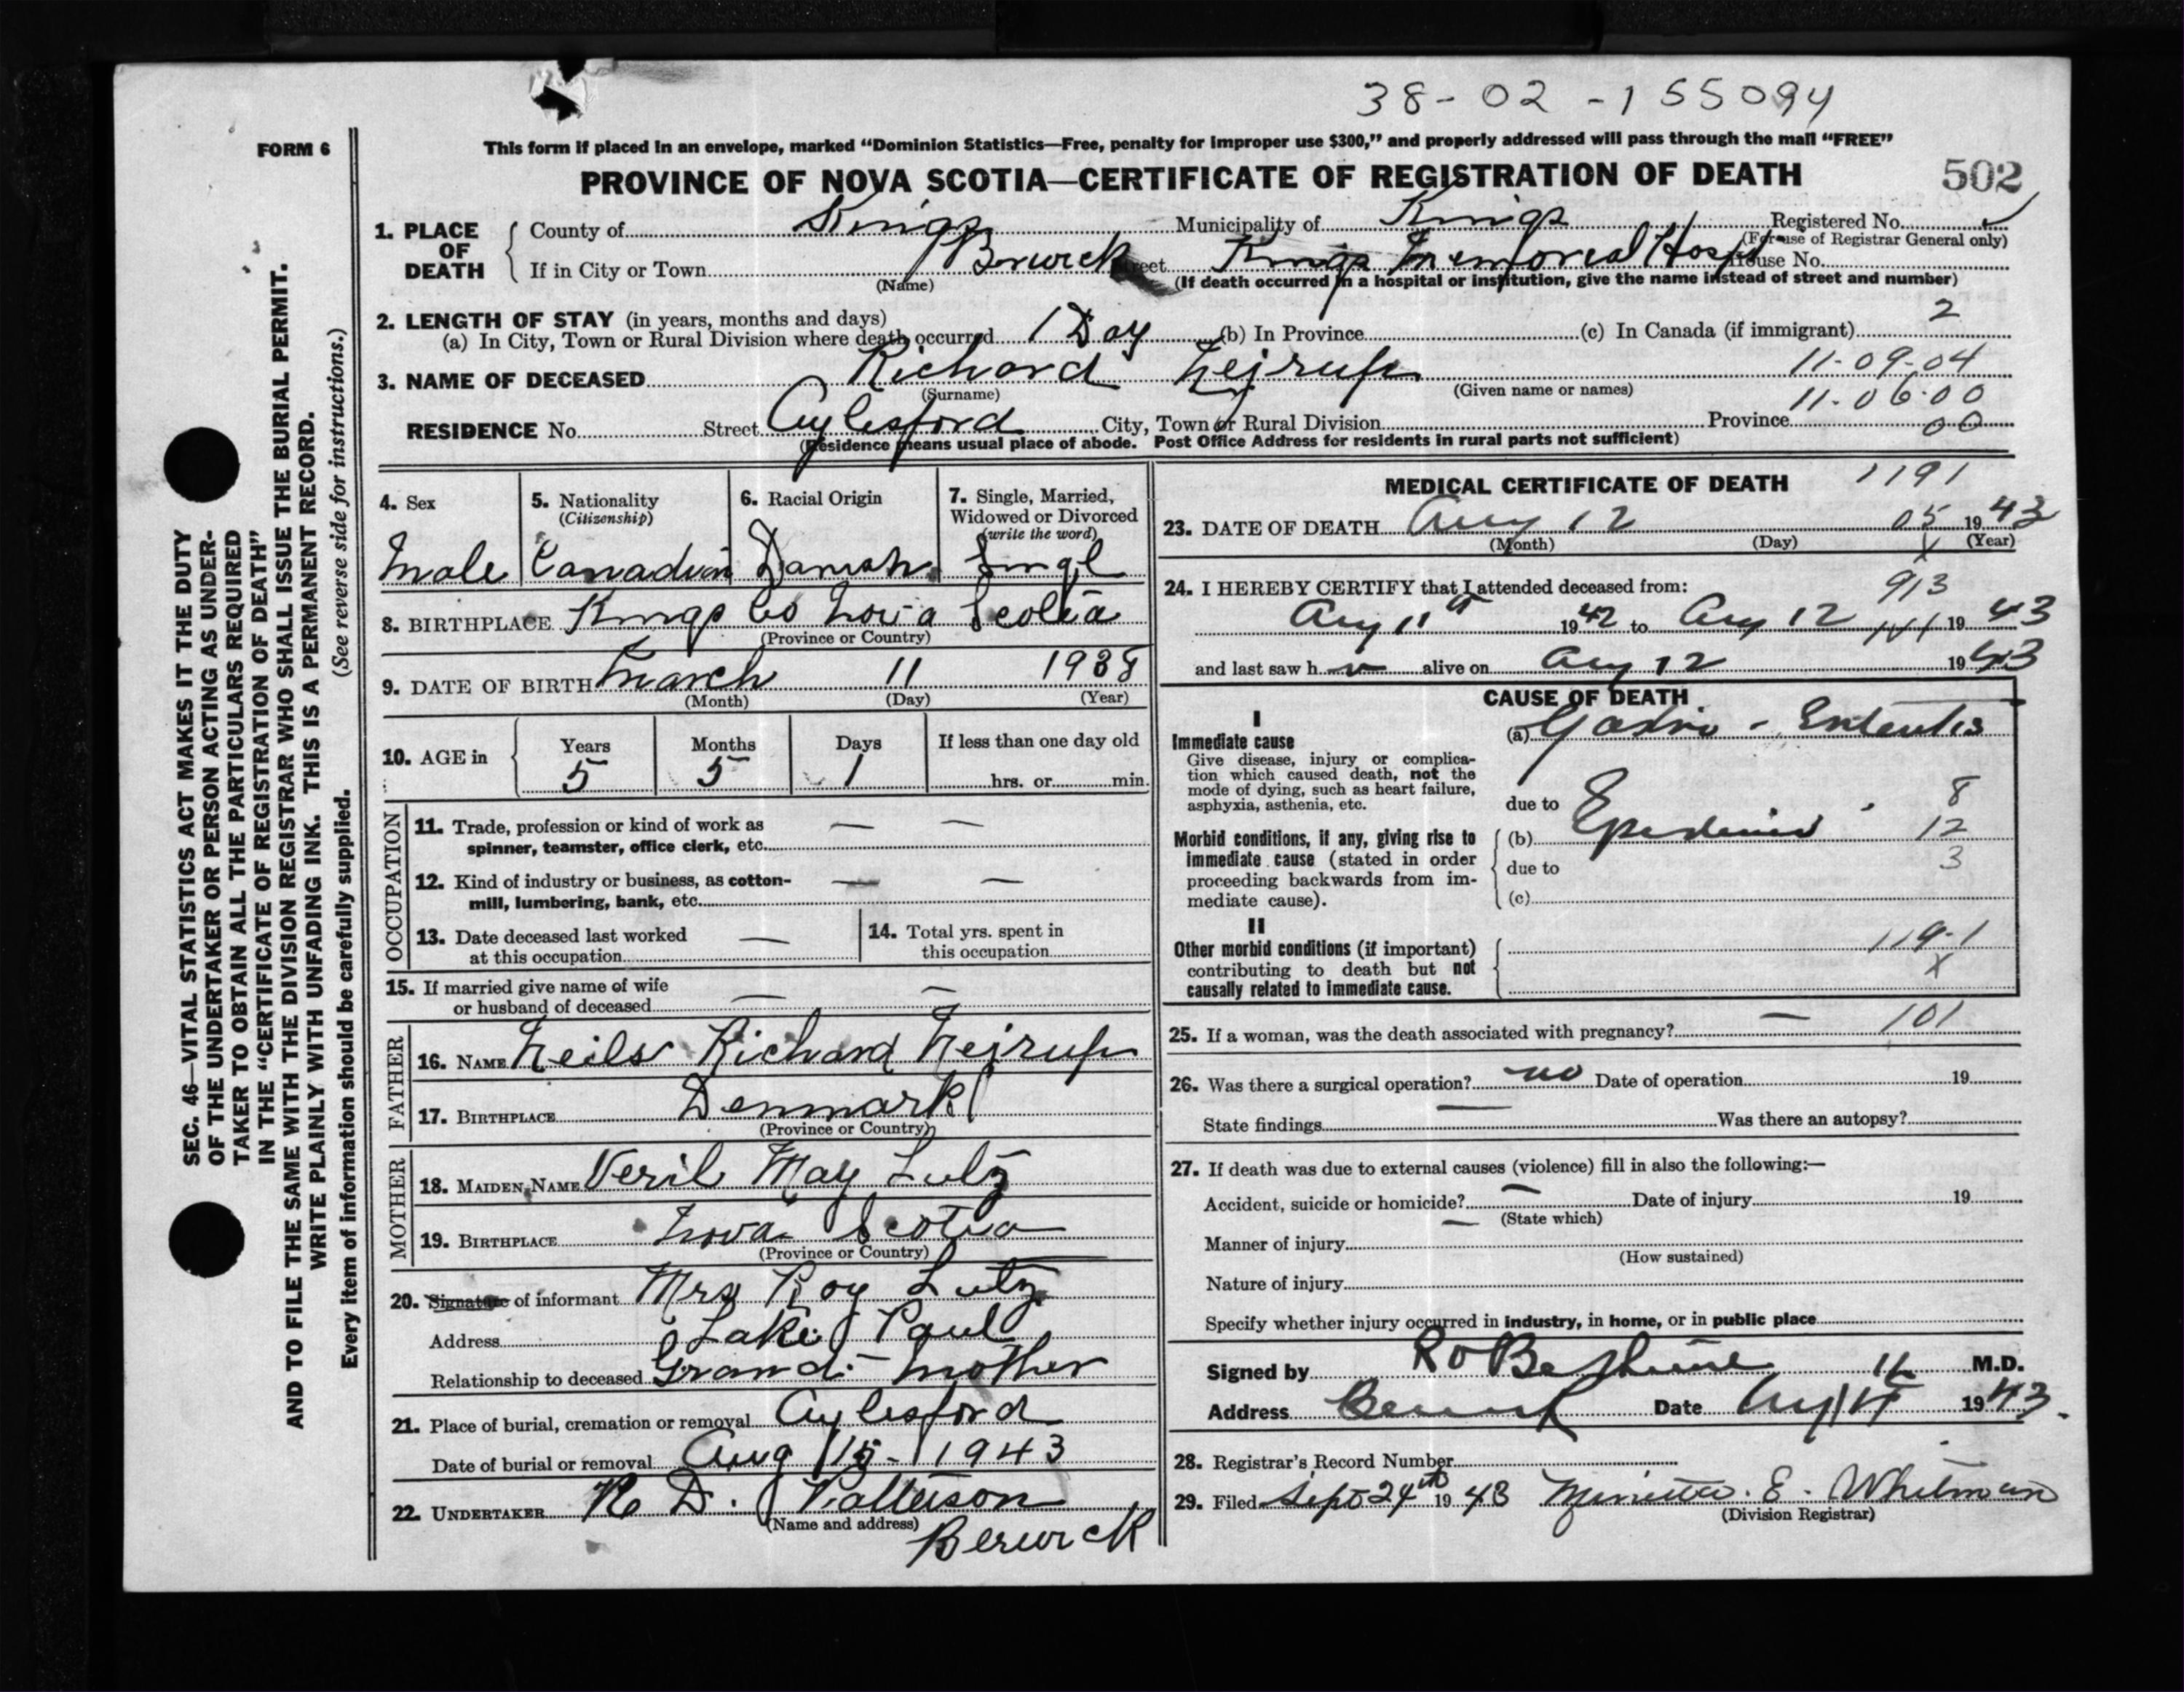 38-02-155094
FORM 6
This form if placed in an envelope, marked "Dominion Statistics—Free, penalty for improper use $300," and properly addressed will pass through the mail "FREE"
PROVINCE OF NOVA SCOTIA—CERTIFICATE OF REGISTRATION OF DEATH 502
1. PLACE OF DEATH County of Kings Municipality of Kings Registered No.
(For use of Registrar General only)
If in City or Town Berwick Street Kings Memorial Hosp House No.
(Name) (If death occurred in a hospital or institution, give the name instead of street and number)
2. LENGTH OF STAY (in years, months and days) 2
(a) In City, Town or Rural Division where death occurred 1 Day (b) In Province (c) In Canada (if immigrant)
3. NAME OF DECEASED Richard Nejrup 11-09-04
(Surname) (Given name or names) 11-06-00
RESIDENCE No. Street Aylesford City, Town or Rural Division Province 00
(Residence means usual place of abode. Post Office Address for residents in rural parts not sufficient)
4. Sex 5. Nationality (Citizenship) 6. Racial Origin 7. Single, Married, Widowed or Divorced (write the word)
Male Canadian Danish Singl
8. BIRTHPLACE Kings Co Nova Scotia
(Province or Country)
9. DATE OF BIRTH March 11 1938
(Month) (Day) (Year)
10. AGE in Years Months Days If less than one day old
5 5 1 hrs. or min.
OCCUPATION
11. Trade, profession or kind of work as — —
spinner, teamster, office clerk, etc.
12. Kind of industry or business, as cotton- — —
mill, lumbering, bank, etc.
13. Date deceased last worked at this occupation — 14. Total yrs. spent in this occupation
15. If married give name of wife or husband of deceased — —
FATHER
16. NAME Neils Richard Nejrup
17. BIRTHPLACE Denmark
(Province or Country)
MOTHER
18. MAIDEN NAME Veril May Lutz
19. BIRTHPLACE Nova Scotia
(Province or Country)
20. Signature of informant Mrs Roy Lutz
Address Lake Paul
Relationship to deceased Grand-mother
21. Place of burial, cremation or removal Aylesford
Date of burial or removal Aug 15-1943
22. UNDERTAKER R. D. Patterson
(Name and address) Berwick
MEDICAL CERTIFICATE OF DEATH 1191
23. DATE OF DEATH Aug 12 05 1943
(Month) (Day) X (Year)
24. I HEREBY CERTIFY that I attended deceased from: 913
Aug 11 1942 to Aug 12 1943
and last saw h alive on Aug 12 1943
CAUSE OF DEATH
I
Immediate cause (a) Gastro-Enteritis
Give disease, injury or complica-
tion which caused death, not the
mode of dying, such as heart failure,
asphyxia, asthenia, etc. due to 8
Morbid conditions, if any, giving rise to (b) Epidemic 12
immediate cause (stated in order due to 3
proceeding backwards from im-
mediate cause). (c)
II
Other morbid conditions (if important) 119-1
contributing to death but not X
causally related to immediate cause.
25. If a woman, was the death associated with pregnancy? — 101
26. Was there a surgical operation? no Date of operation 19
State findings — Was there an autopsy?
27. If death was due to external causes (violence) fill in also the following:—
Accident, suicide or homicide? — Date of injury 19
(State which)
Manner of injury —
(How sustained)
Nature of injury
Specify whether injury occurred in industry, in home, or in public place
Signed by M.D.
Address Berwick Date Aug 14 1943.
28. Registrar's Record Number
29. Filed Sept 24th 1943 Minetta. E. Whitman
(Division Registrar)
SEC. 46—VITAL STATISTICS ACT MAKES IT THE DUTY
OF THE UNDERTAKER OR PERSON ACTING AS UNDER-
TAKER TO OBTAIN ALL THE PARTICULARS REQUIRED
IN THE "CERTIFICATE OF REGISTRATION OF DEATH"
AND TO FILE THE SAME WITH THE DIVISION REGISTRAR WHO SHALL ISSUE THE BURIAL PERMIT.
WRITE PLAINLY WITH UNFADING INK. THIS IS A PERMANENT RECORD.
Every item of information should be carefully supplied. (See reverse side for instructions.)